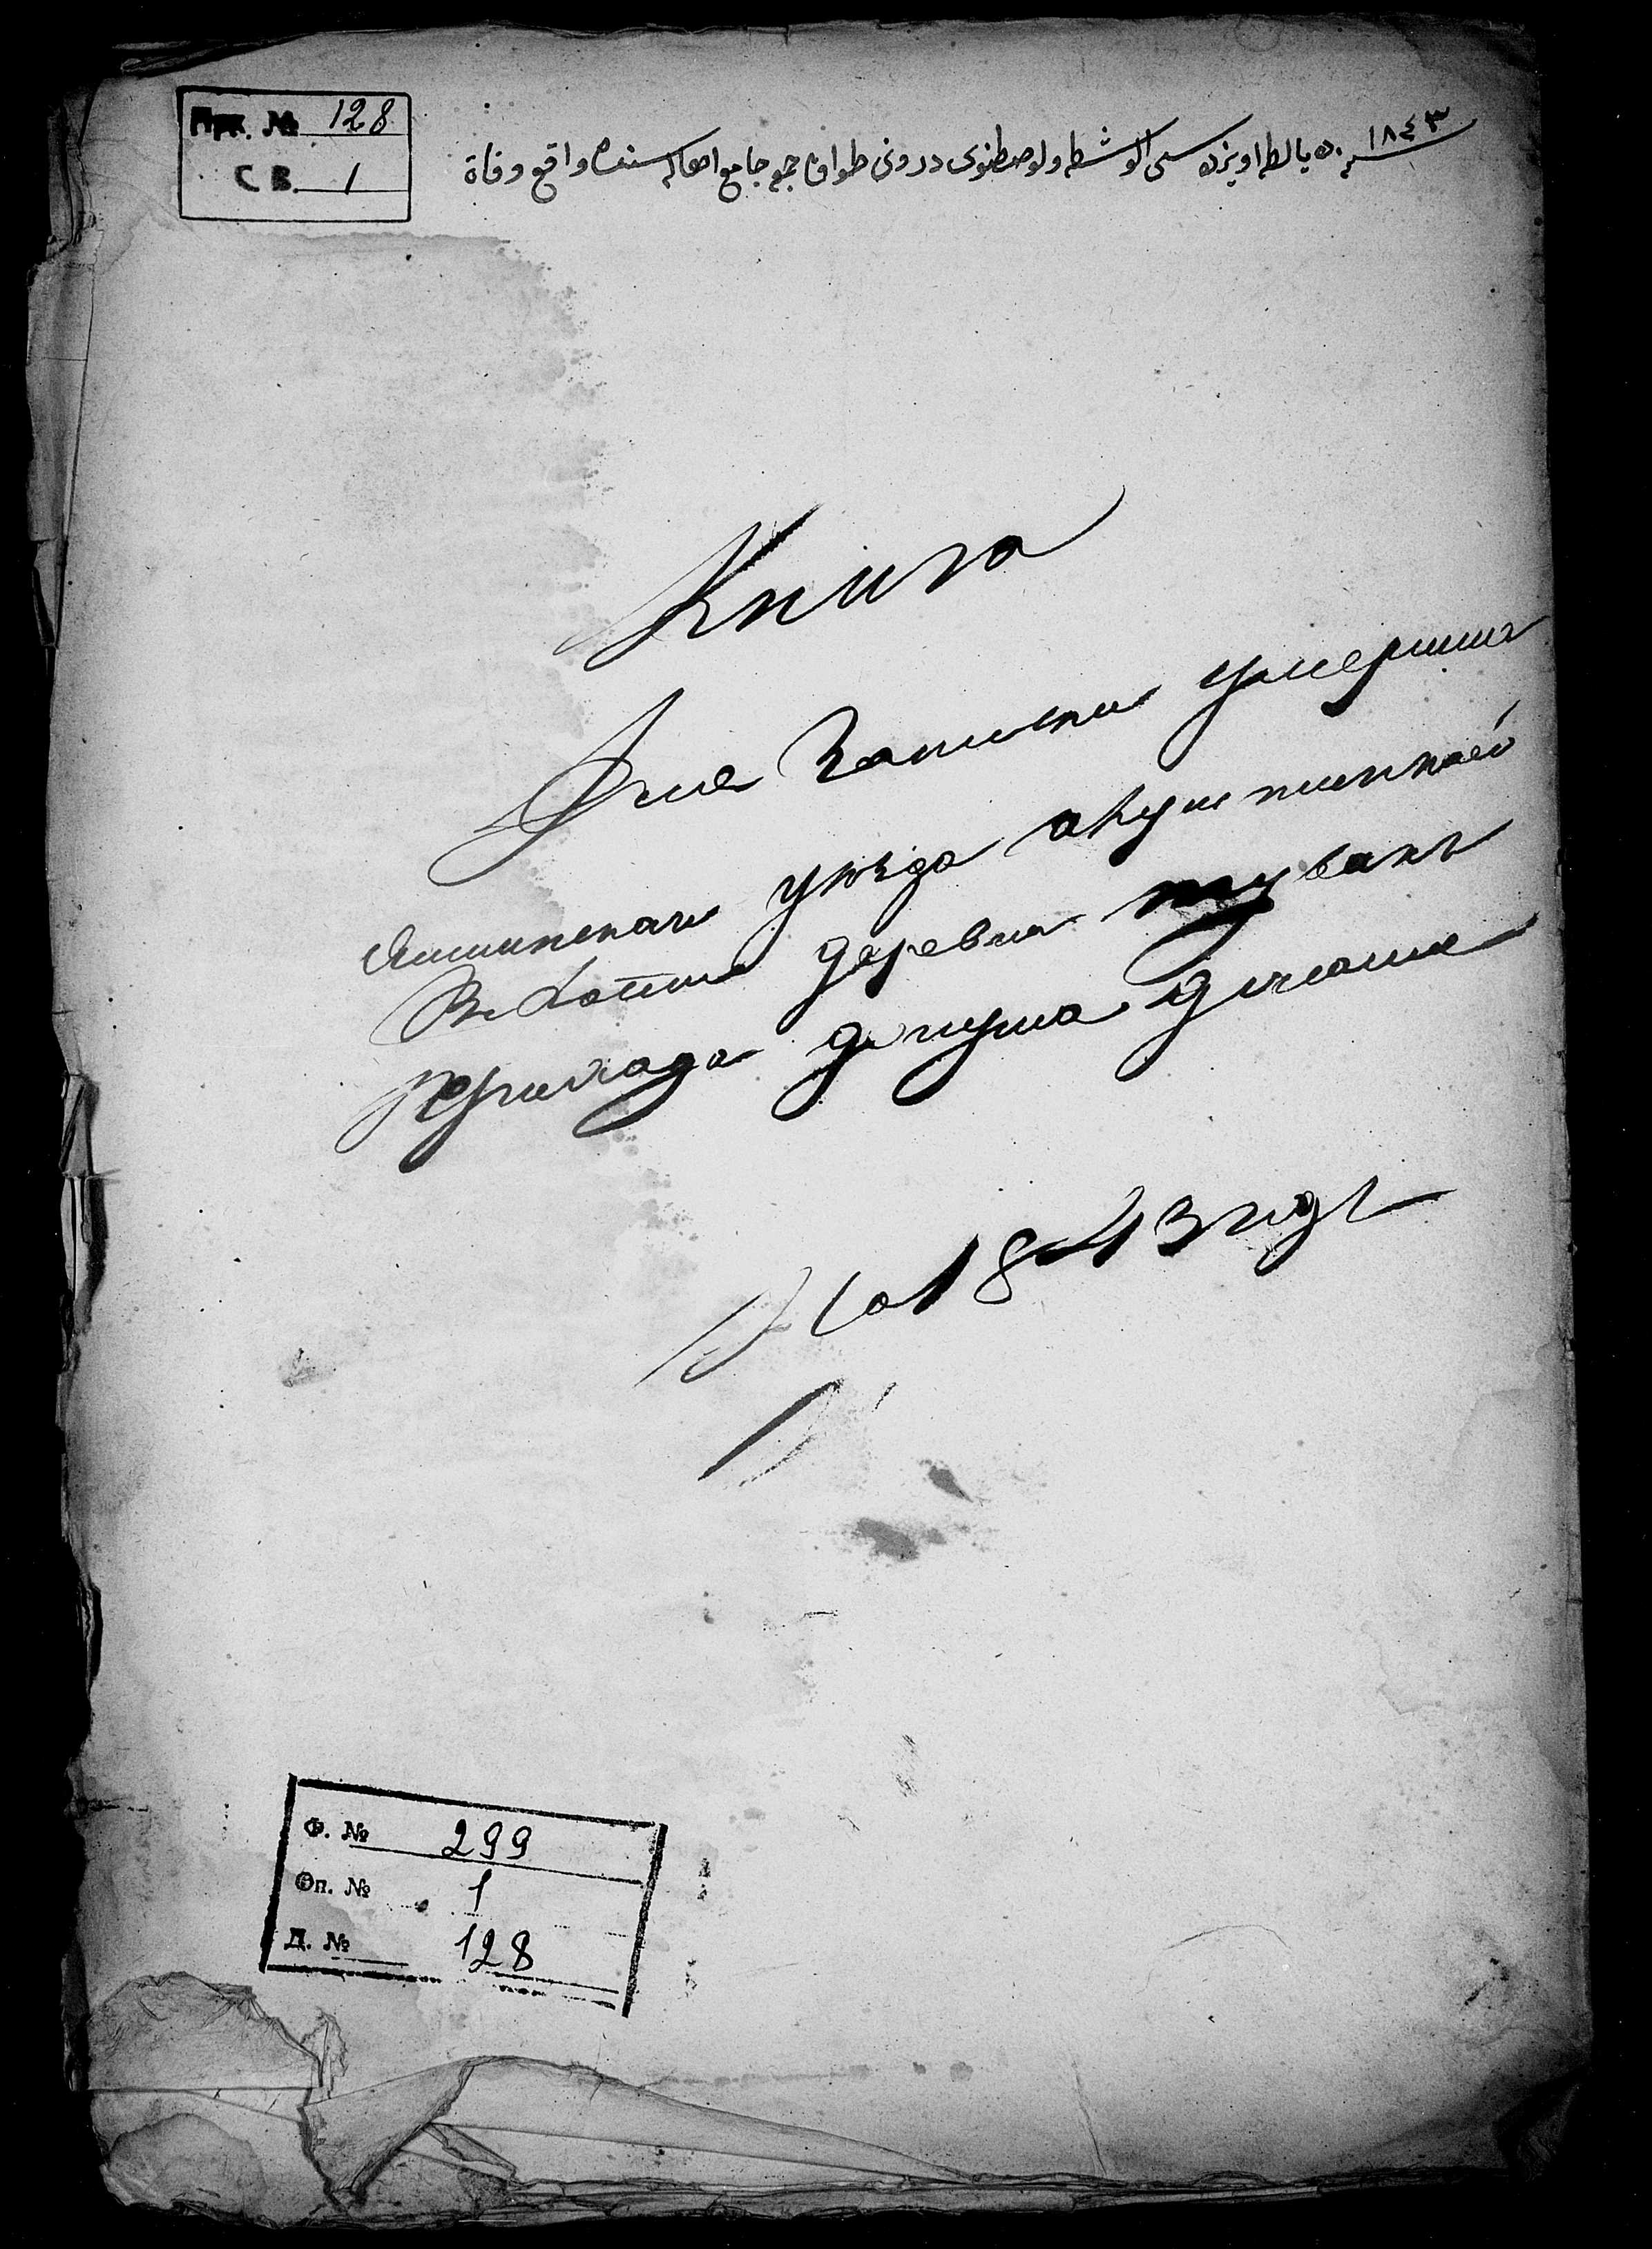 Прк. № 128
СВ. 1
١٨٤٣
سنه ده يالطه اويزده سى الوشطه ولوصطنوى درونى طواق جمعه جامع اهالى سنده واقع وفاة
Книга
Для Записки умерших
Ялтинскаго уезда алуштинской
Волости деревни тувакъ
Прихода джума джами
На 1843 годъ
Ф. № 299
Оп. № 1
Д. № 128